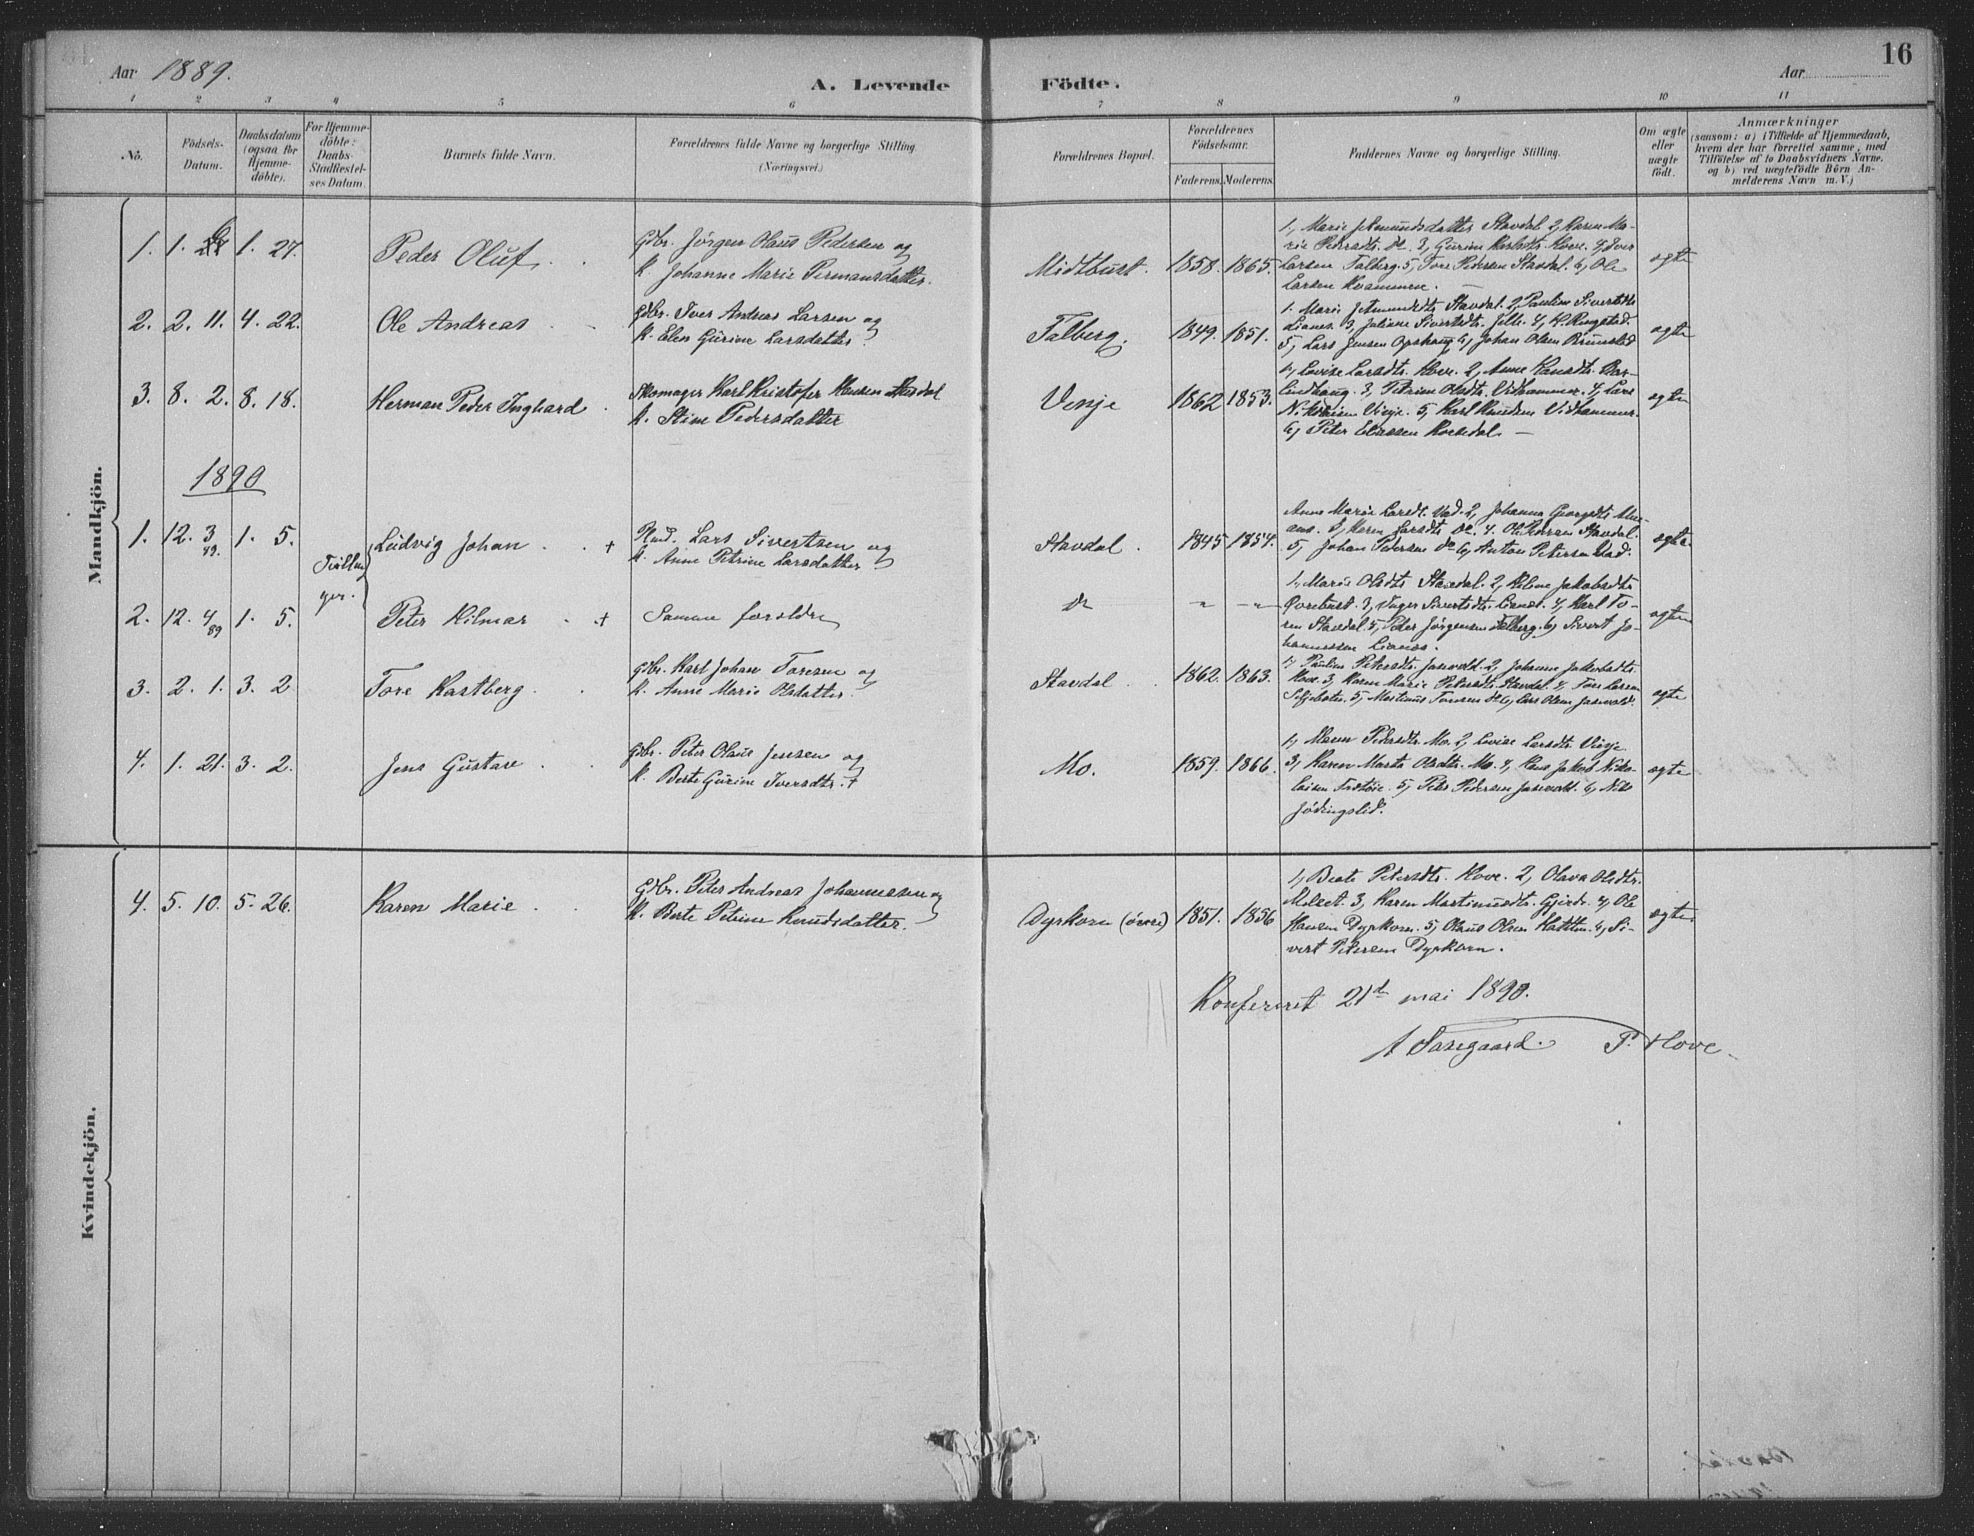 Aar 1889.
A. Levende Födte.
Aar
16
1 2 3 4 5 6 7 8 9 10 11
No.
Födsels-Datum.
Daabsdatum (ogsaa for Hjemme-döbte).
For Hjemme-döbte: Daabs-Stadfæstel-ses Datum.
Barnets fulde Navn.
Forældrenes fulde Navne og borgerlige Stilling (Næringsvei.)
Forældrenes Bopæl.
Forældrenes Födselsaar.
Faderens. Moderens.
Faddernes Navne og borgerlige Stilling.
Om ægte eller uægte födt.
Anmærkninger
(saasom: a) i Tilfælde af Hjemmedaab,
hvem der har forrettet samme, med
Tilföielse af to Daabsvidners Navne,
og b) ved uægtefödte Börn An-
melderens Navn m. V.)
Mandkjön.
1. 1. 1. 27. Peder Oluf
Gbr. Jörgen Olaus Pedersen og
K. Johanne Marie Permansdatter.
Midtbust. 1858. 1865.
1, Marie Jetmundsdatter Stavdal 2, Karen Ma-
rie Pedersdt. do 3, Gurine Karlsdt. Hove. 4, Iver
Larsen Talberg. 5, Tore Pedersen Stavdal. 6, Ole
Larsen Kvammen.
ægte
2. 2. 11. 4. 22. Ole Andreas
Gbr. Iver Andreas Larsen og
K. Elen Gurine Larsdatter.
Talberg. 1849. 1851.
1. Marie Jetmundsdt. Stavdal. 2, Pauline Sivertsdt.
Lianes. 3, Juliane Sivertsdt. 4, K. Ringstad.
5, Lars Jensen Opshaug 6, Johan Olsen Brunstad
ægte
3. 8. 2. 8. 18. Herman Peder Inghard
Skomager Karl Kristofer Hansen
K. Stine Pedersdatter
Vinje 1862 1853.
1, Lovise Larsdt. Hove. 2, Anne Hansdt.
3, Petrine Olsdt. Vidhammer. 4, Lars
Vinje. 5, Karl Knudsen Vidhammer.
6, Peter Eliassen
ægte
1890
1. 12. 3/89. 1. 5. Tvillin-
ger. Ludvig Johan +
Hmd. Lars Sivertsen og
K. Anne Petrine Larsdatter
Stavdal. 1845 1854.
Anne Marie Larsdt. Vad. 2, Johanne Georgsdt.
3, Karen Larsdt. do. 4. Ole Stavdal.
5, Johan Pedersen do 6, Anton Petersen Vad.
ægte
2. 12. 4/89 1. 5. Peter Hilmar +
Samme foreldre
do " "
1, Marie Olsdt. Stavdal. 2, Jakobsdt.
Övrebust. 3, Inger Sivertsdt. Lianes. 4, Karl To-
resen Stavdal 5, Peter Jørgensen Talberg. 6, Sivert Jo-
hannessen Lianes.
ægte
3. 2. 1. 3. 2 Tore Kastberg
Gbr. Karl Johan Toresen og
K. Anne Marie Olsdatter
Stavdal 1862. 1863.
1, Pauline Petersdt. 2, Johanne Jakobsdt.
Hove. 3, Karen Marie Petersdt. Stavdal. 4, Tore Larsen
5, Martinus Toresen do 6, Lars Olsen
ægte
4. 1. 21. 3. 2. Jens Gustav
Gbr. Peter Olaus Jensen og
K. Berte Gurine Iversdtr. +
Mo. 1859. 1866.
1, Maren Pedersdt. Mo. 2, Lovise Larsdt. Vinje
3, Karen Marta Olsdt. Mo. 4, Hans Jakob Niko-
laisen 5, Peter Pedersen 6, Nils
Jödingslid.
ægte
Kvindekjön.
4. 5. 10. 5. 26. Karen Marie
Gbr. Peter Andreas Johannessen og
K. Berte Petrine Knudsdatter.
Dyrkorn (övre) 1851. 1856
1, Beate Petersdt. Hove. 2, Olava Olsdt.
Molset. 3, Karen Martinusdt. Gjerde. 4, Ole
Hansen Dyrkorn. 5, Olaus Olsen 6, Si-
vert Petersen Dyrkorn.
ægte
Konfereret 21de mai 1890.
A Saxegaard. P. Hove